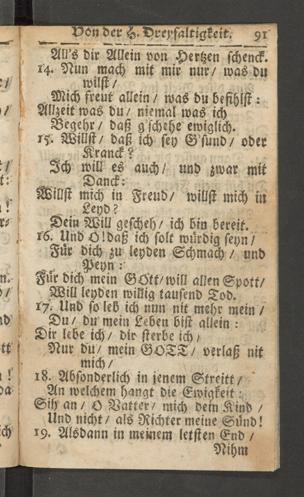 Von der H. Dreyfaltigkeit. 91
All's dir Allein von Hertzen schenck.
14. Nun mach mit mir nur / was du
wilst /
Mich freut allein / was du befihlst :
Allzeit was du / niemal was ich
Begehr / daß g'schehe ewiglich.
15. Willst / daß ich sey G'sund / oder
Kranck ?
Ich will es auch / und zwar mit
Danck :
Willst mich in Freud / willst mich in
Leyd ?
Dein Will gescheh / ich bin bereit.
16. Und O ! daß ich solt würdig seyn /
Für dich zu leyden Schmach / und
Peyn :
Für dich mein GOtt / will allen Spott /
Will leyden willig tausend Tod.
17. Und so leb ich nun nit mehr mein /
Du / du mein Leben bist allein :
Dir lebe ich / dir sterbe ich /
Nur du / mein GOTT / verlaß nit
mich /
18. Absonderlich in jenem Streitt /
An welchem hangt die Ewigkeit :
Sih an / O Vatter / mich dein Kind /
Und nicht / als Richter meine Sünd !
19. Alsdann in meinem letsten End /
Nihm